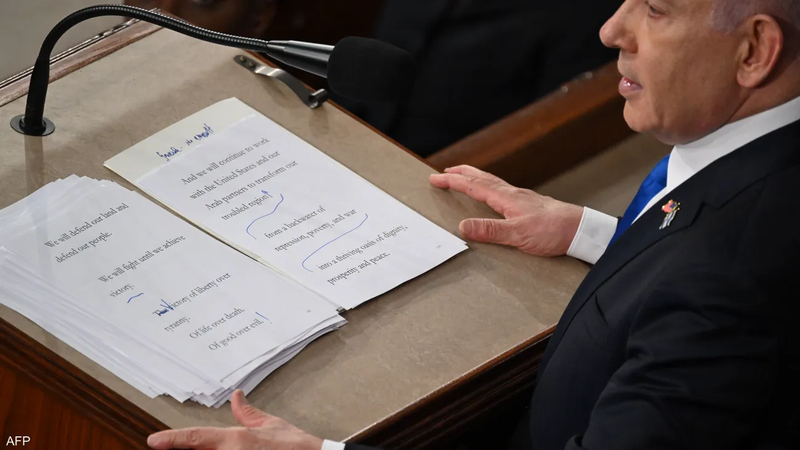 We will defend our land and
defend our people.
We will fight until we achieve
victory.
Victory of liberty over
tyranny.
Of life over death.
Of good over evil!
And we will continue to work
with the United States and our
Arab partners to transform our
troubled region
from a backwater of
repression, poverty, and war
into a thriving oasis of dignity,
prosperity and peace.
AFP